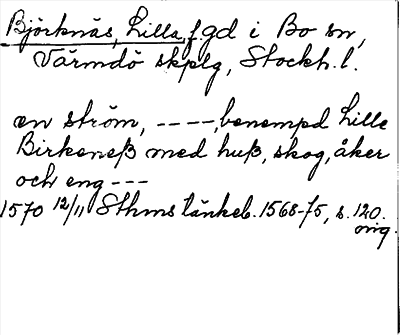 Björknäs, Lilla, f.gd i Bo sn,
Värmdö skplg, Stockh. l.
en ström, ----, benempd Lille
Birkeneß med huß, skog, åker
och eng ---
1570 12/11 Sthms tänkeb. 1568-75, s. 120.
orig.